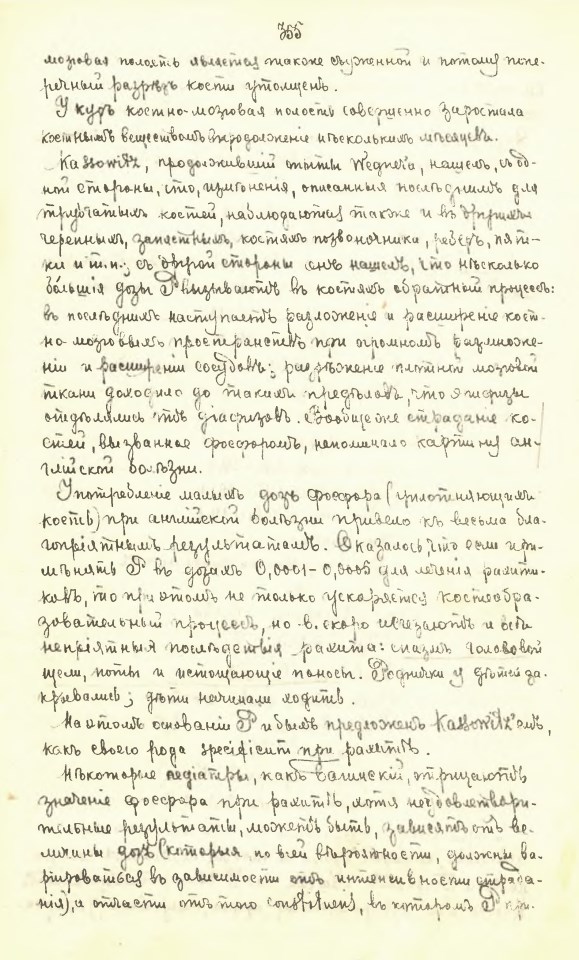 355
мозговая полость является также съуженной и потому попе-
речный разрѣзъ кости утолщенъ.
У куръ костно-мозговая полость совершенно заростала
костнымъ веществомъ впродолженіе нѣсколькихъ мѣсяцевъ.
Kassowitz, продолжившій опыты Wegner'а, нашелъ, съ од-
ной стороны, что, измѣненія, описанныя послѣднимъ для
трубчатыхъ костей, наблюдаются также и въ другихъ
черепныхъ, запястныхъ, костяхъ позвоночника, реберъ, пят-
ки и т.п.; съ другой стороны онъ нашелъ, что нѣсколько
большія дозы P вызываютъ въ костяхъ обратный процессъ:
въ послѣднихъ наступаетъ разложеніе и расширеніе кост-
но-мозговыхъ пространствъ при огромномъ размноже-
ніи и расширеніи сосудовъ; разрѣженіе плотной мозговой
ткани доходило до такихъ предѣловъ, что эпифизы
отдѣлялись отъ діафизовъ. Вообще же страданіе ко-
стей, вызванное фосфоромъ, напоминало картину ан-
глійской болѣзни.
Употребленіе малыхъ дозъ фосфора (уплотняющихъ
кость) при англійской болѣзни привело къ весьма бла-
гопріятнымъ результатамъ. Оказалось, что если при-
мѣнять P въ дозахъ 0,0001-0,0005 для леченія рахити-
ковъ, то при этомъ не только ускоряется костеобра-
зовательный процессъ, но в. скоро исчезаютъ и всѣ
непріятныя послѣдствія рахита: спазмъ головой
щели, поты и истощающіе поносы. Роднички у дѣтей за-
крывались; дѣти начинали ходить.
На этомъ основаніи P и былъ предложенъ Kassowitz'емъ,
какъ своего рода specificum при рахитѣ.
Нѣкоторые педіатры, какъ Багинскій, отрицаютъ
значеніе фосфора при рахитѣ, хотя неудовлетвори-
тельные результаты, можетъ быть, зависятъ отъ ве-
личины дозъ (которыя по всей вѣроятности, должны ва-
риироваться въ зависимости отъ интенсивности страда-
нія), а отчасти отъ того constituens, въ которомъ P при-